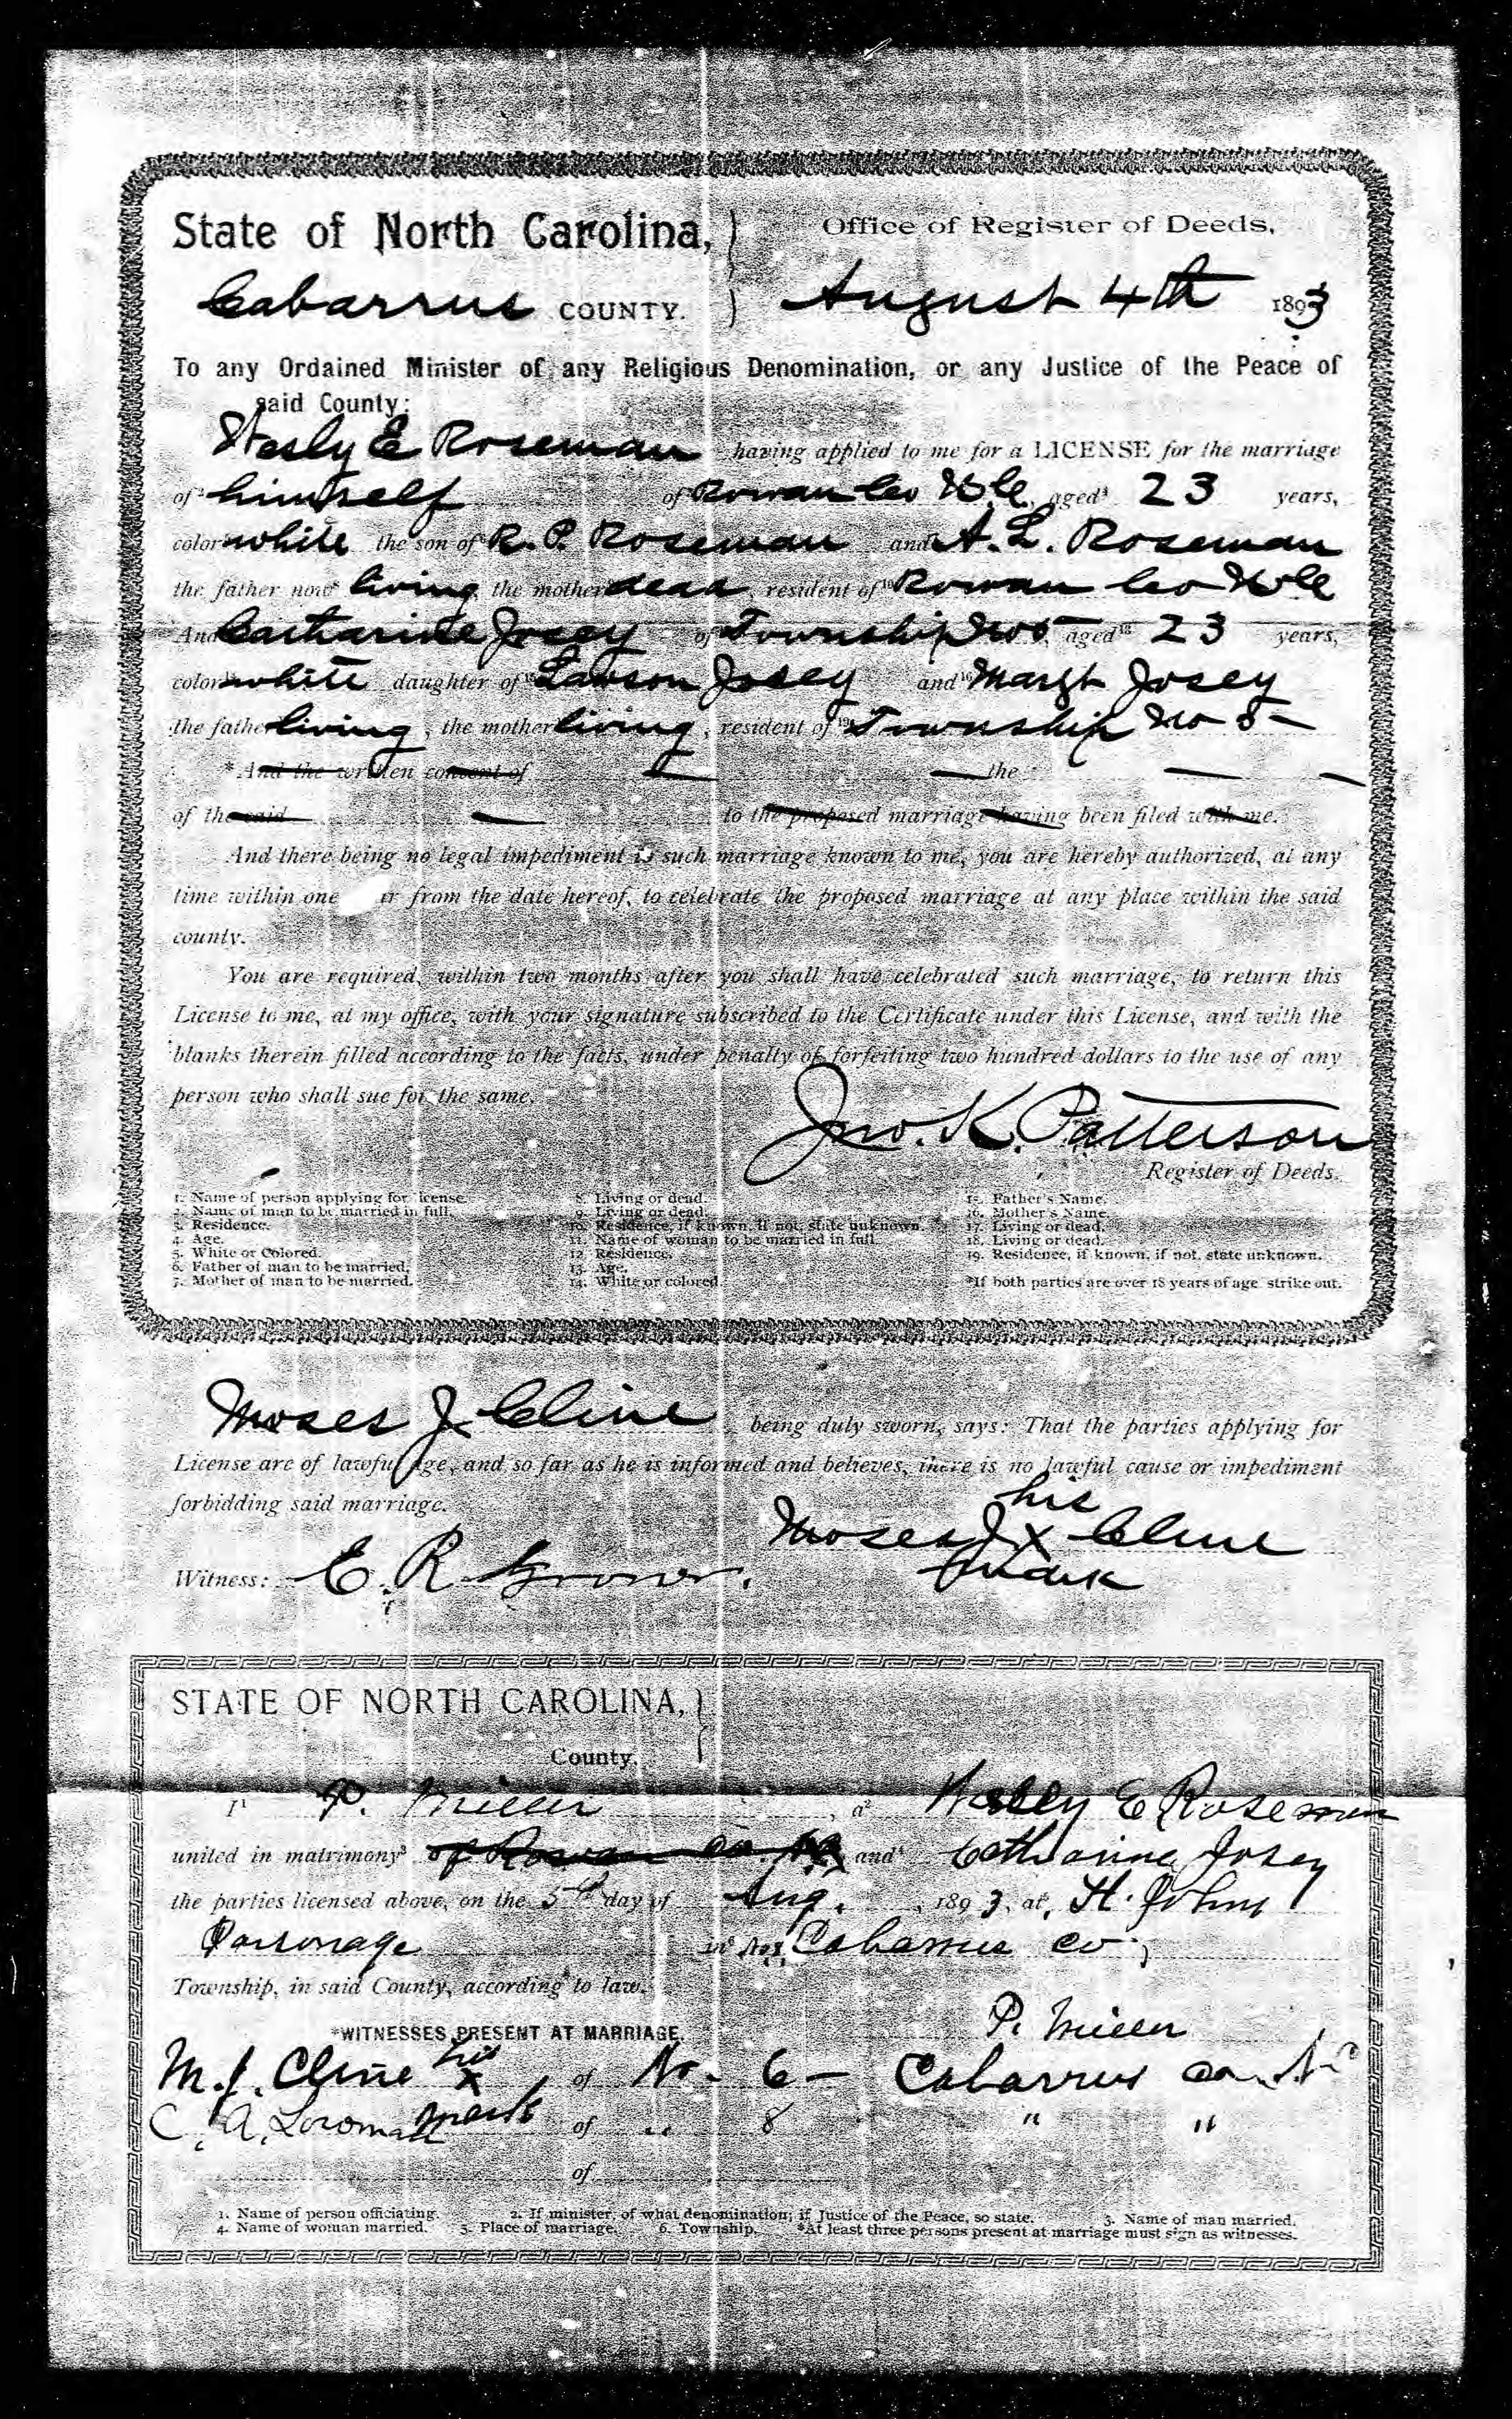 State of North Carolina, Office of Register of Deeds,
Cabarrus COUNTY. August 4th 1893
To any Ordained Minister of any Religious Denomination, or any Justice of the Peace of
said County:
Wesly E Roseman having applied to me for a LICENSE for the marriage
of² himself of³ Rowan Co N C, aged⁴ 23 years,
color⁵ white the son of⁶ R. P. Roseman and⁷ A. L. Roseman
the father now⁸ living, the mother⁹ dead, resident of¹⁰ Rowan Co N C
And Catharine Josey of Township No 5 aged¹³ 23 years,
color white daughter of¹⁵ Lawson Josey and¹⁶ Margt Josey
the father living, the mother living, resident of¹⁹ Township No 5
*And the written consent of the
of the said to the proposed marriage having been filed with me.
And there being no legal impediment to such marriage known to me, you are hereby authorized, at any
time within one from the date hereof, to celebrate the proposed marriage at any place within the said
county.
You are required, within two months after you shall have celebrated such marriage, to return this
License to me, at my office, with your signature subscribed to the Certificate under this License, and with the
blanks therein filled according to the facts, under penalty of forfeiting two hundred dollars to the use of any
person who shall sue for the same.
Jno. K. Patterson
Register of Deeds.
1. Name of person applying for license.
2. Name of man to be married in full.
3. Residence.
4. Age.
5. White or Colored.
6. Father of man to be married.
7. Mother of man to be married.
8. Living or dead.
9. Living or dead.
10. Residence, if known, if not, state unknown.
11. Name of woman to be married in full.
12. Residence.
13. Age.
14. White or colored.
15. Father's Name.
16. Mother's Name.
17. Living or dead.
18. Living or dead.
19. Residence, if known, if not, state unknown.
*If both parties are over 18 years of age strike out.
Moses J. Cline being duly sworn, says: That the parties applying for
License are of lawful age, and so far as he is informed and believes, there is no lawful cause or impediment
forbidding said marriage.
his
Moses J. X Cline
mark
Witness: E. R.
STATE OF NORTH CAROLINA,
County.
I¹ P. Miller, a² Wesley E Roseman
united in matrimony³ of Rowan co. NC and⁴ Catharine Josey
the parties licensed above, on the 5th day of Aug., 1893, at, St. Johns
Parsonage in⁶ Cabarrus co.,
Township, in said County, according to law.
P. Miller
*WITNESSES PRESENT AT MARRIAGE.
M. J. Cline his X mark of No. 6 — Cabarrus co. N C
C. A. of " 8 " "
of
1. Name of person officiating. 2. If minister, of what denomination; if Justice of the Peace, so state. 3. Name of man married.
4. Name of woman married. 5. Place of marriage. 6. Township. *At least three persons present at marriage must sign as witnesses.